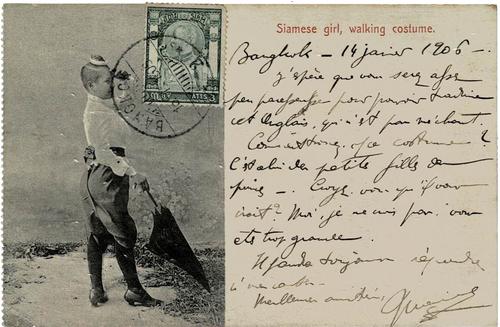 Siamese girl, walking costume.
Bangkok - 14 janvier 1906 -
J'espère que vous serez assez
peu paresseuse pour pouvoir traduire
cet Anglais, qui n'est pas méchant.
Comment trouvez ce costume ?
C'est celui des petites filles du
pays -. Croyez-vous qu'il vous
irait? Moi, je ne crois pas, vous
êtes trop grande.
toujours répondre
à
Meilleures amitiés,
BANGKOK
ATTS